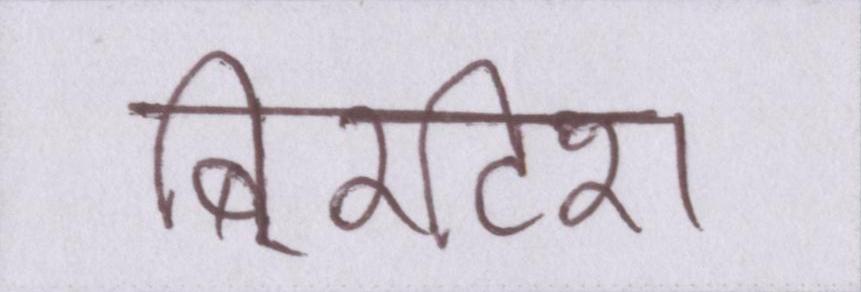 बि्रटिश